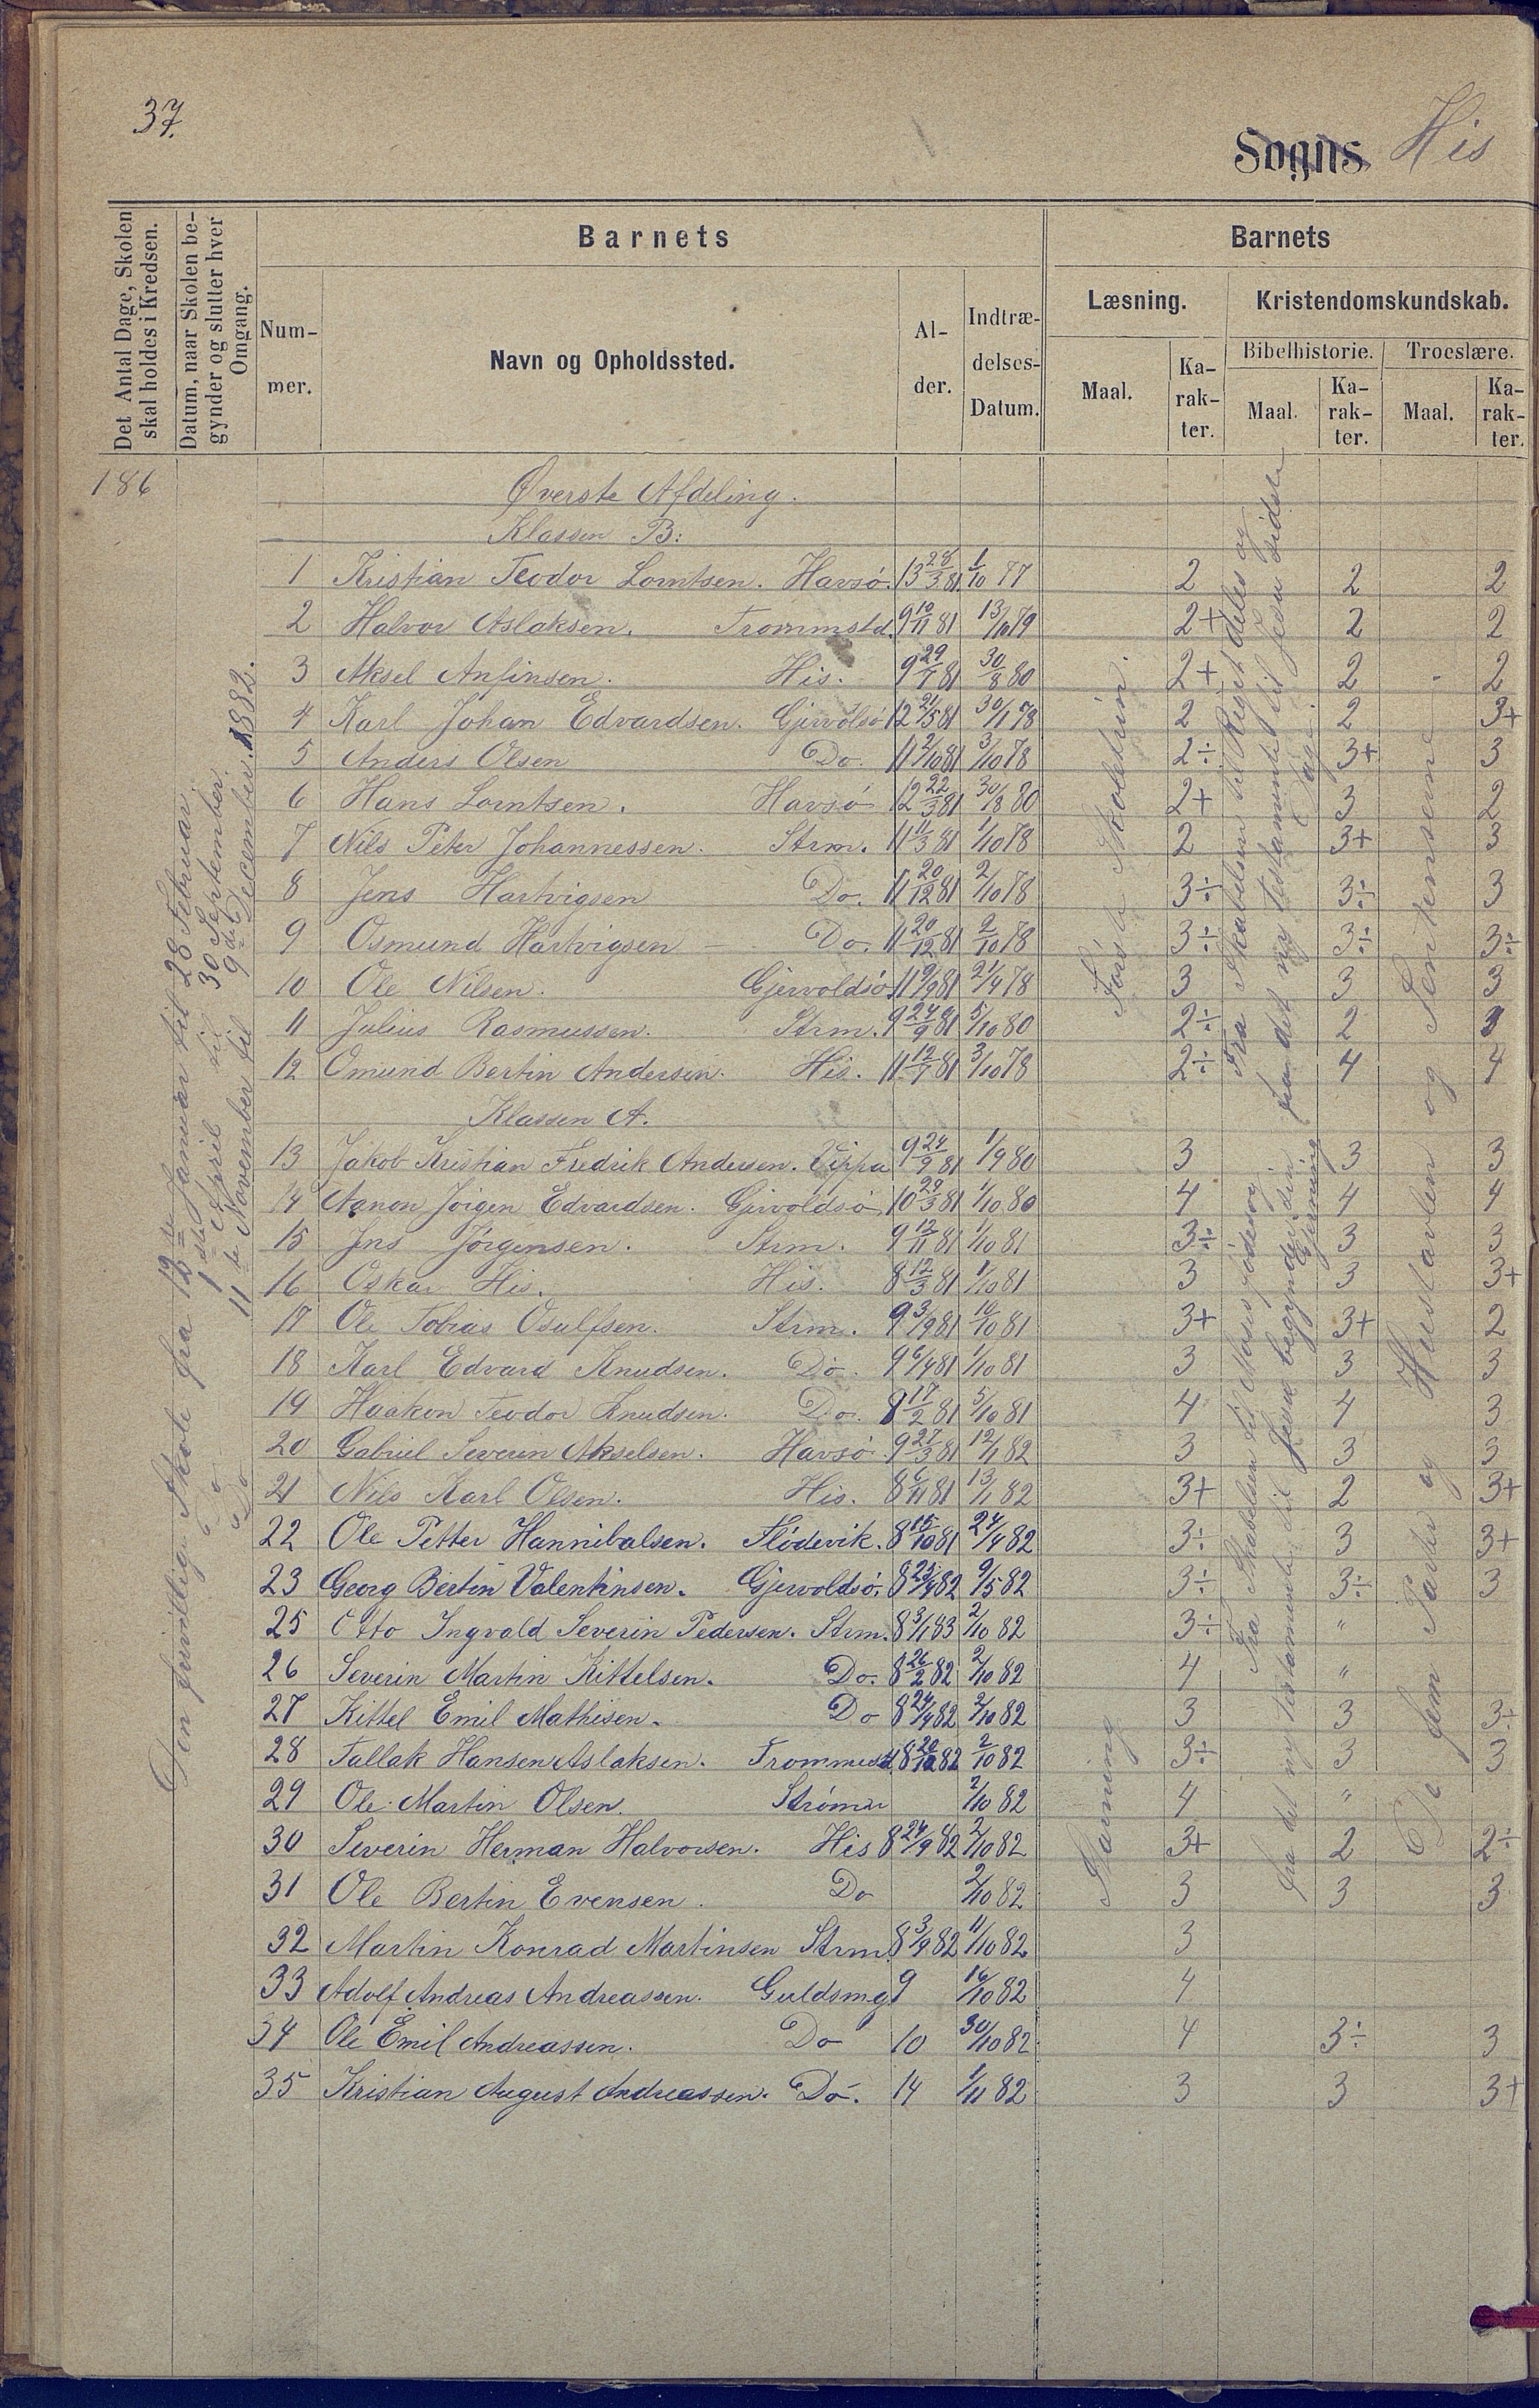 37.
Sogns His
Det Antal Dage, Skolen skal holdes i Kredsen.
Datum, naar Skolen begynder og slutter hver Omgang.
Barnets
Barnets
Nummer.
Navn og Opholdssted.
Alder.
Indtrædelses-Datum.
Læsning.
Kristendomskundskab.
Bibelhistorie.
Troeslære.
Maal.
Karakter.
Maal.
Karakter.
Maal.
Karakter.
186
Den frivillige Skole fra 12te Januar til 28 Februar
Do 1ste April til 30 September
Do 11te November til 9de December 1882.
Første Skoletrin.
Fra Skabelsen til Riget deles og
fra det ny testamente til Jesu sidste
Dage.
og Sentenserne
Øverste Afdeling.
Klassen B:
1 Kristian Teodor Lorntsen. Havsø. 13 28/3 81. 1/10 77 2 2 2
2 Halvor Aslaksen. Trommstd. 9 10/11 81 13/10 79 2+ 2 2
3 Aksel Anfinsen. His. 9 29/7 81 30/8 80 2+ 2 2
4 Karl Johan Edvardsen. Gjervoldsø 12 21/5 81 30/1 78 2 2 3+
5 Anders Olsen Do. 11 2/10 81 3/10 78 2÷ 3+ 3
6 Hans Lorntsen. Havsø 12 22/3 81 30/8 80 2+ 3 2
7 Nils Peter Johannessen. Strm. 11 11/3 81 1/10 78 2 3+ 3
8 Jens Hartvigsen Do. 11 20/12 81 2/10 78 3÷ 3÷ 3
9 Osmund Hartvigsen — Do. 11 20/12 81 2/10 78 3÷ 3÷ 3÷
10 Ole Nilsen. Gjervoldsø 11 9/9 81 21/4 78 3 3 3
11 Julius Rasmussen. Strm. 9 24/9 81 5/10 80 2÷ 2 3
12 Omund Bertin Andersen. His. 11 12/7 81 3/10 78 2÷ 4 4
Klassen A.
13 Jakob Kristian Fredrik Andersen. Vippa 9 24/9 81 1/9 80 3 3 3
14 Aanon Jörgen Edvardsen. Gjervoldsø 10 29/3 81 1/10 80 4 4 4
15 Jens Jørgensen. Strm. 9 12/11 81 1/10 81 3÷ 3 3
16 Oskar His. His. 8 12/3 81 1/10 81 3 3 3+
17 Ole Tobias Osulfsen. Strm. 9 3/9 81 10/10 81 3+ 3+ 2
18 Karl Edvard Knudsen. Do. 9 6/4 81 1/10 81 3 3 3
19 Haakon Teodor Knudsen. Do. 8 17/2 81 5/10 81 4 4 3
20 Gabriel Severin Akselsen. Havsø 9 27/3 81 12/1 82 3 3 3
21 Nils Karl Olsen. His. 8 6/11 81 13/1 82 3+ 2 3+
22 Ole Petter Hannibalsen. Flödevik. 8 15/10 81 24/4 82 3÷ 3 3+
23 Georg Bertin Valentinsen. Gjervoldsø. 8 25/4 82 9/5 82 3÷ 3÷ 3
25 Otto Ingvald Severin Pedersen. Strm. 8 3/1 83 2/10 82 3÷ "
26 Severin Martin Kittelsen. Do. 8 26/2 82 2/10 82 4 "
27 Kittel Emil Mathisen. Do 8 24/4 82 2/10 82 3 3 3÷
28 Tallak Hansen Aslaksen. Trommestd 8 20/12 82 2/10 82 3÷ 3 3
29 Ole Martin Olsen. Strømen 2/10 82 4 "
30 Severin Herman Halvorsen. His 8 24/9 82 2/10 82 3+ 2 2÷
31 Ole Bertin Evensen. Do 2/10 82 3 3 3
32 Martin Konrad Martinsen Strm 8 3/9 82 11/10 82 3
33 Adolf Andreas Andreassen. Guldsmg 9 16/10 82 4
34 Ole Emil Andreassen. Do 10 30/10 82 4 3÷ 3
35 Kristian August Andreassen. Do. 14 1/11 82 3 3 3+
Stavning
Fra Skabelsen til Moses' fødes og
fra det ny testamente til Jesu begynder sin
Gjerning
De fem Parter og Hustavlen